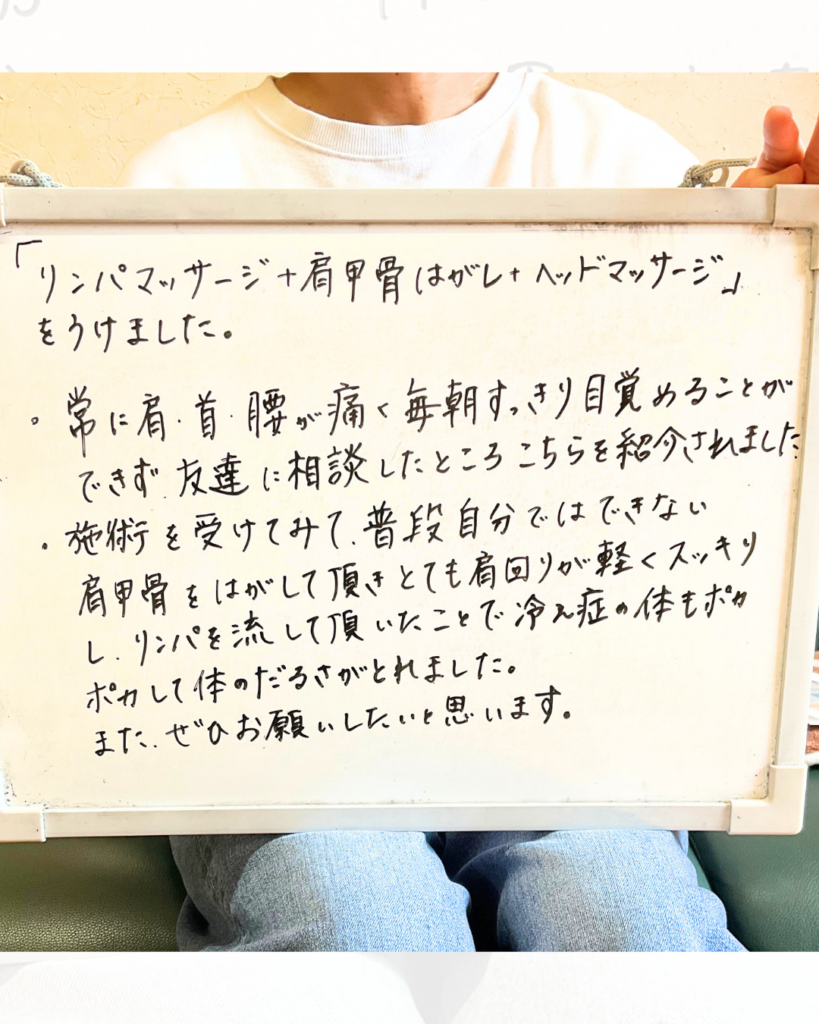 「リンパマッサージ+肩甲骨はがし+ ヘッドマッサージ」
をうけました。
。常に肩・首・腰が痛く毎朝すっきり目覚めることが
できず、友達に相談したところこちらを紹介されました
。施術を受けてみて、普段自分ではできない
肩甲骨をはがして頂きとても肩回りが軽くスッキリ
し、リンパを流して頂いたことで冷え症の体もポカ
ポカして体のだるさがとれました。
また、ぜひお願いしたいと思います。